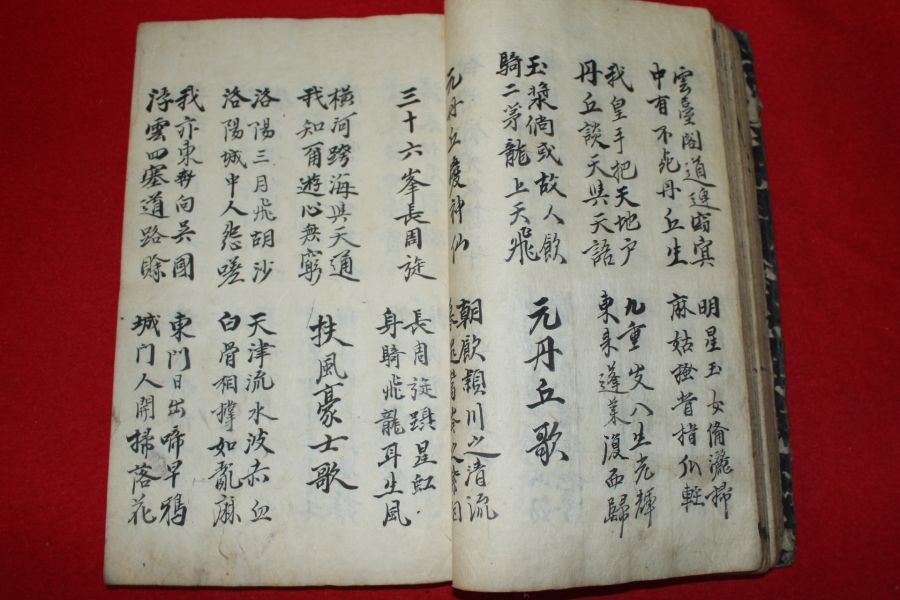 雲臺閣道連窈冥
中有不死丹丘生
明星玉女備灑掃
麻姑搔背指爪輕
我皇手把天地戶
丹丘談天與天語
九重出入生光輝
東來蓬萊復西歸
玉漿倘或故人飲
騎二茅龍上天飛
元丹丘歌
元丹丘愛神仙
朝飲潁川之清流
暮還嵩岑之紫烟
三十六峯長周旋
長周旋躡星虹
身騎飛龍耳生風
橫河跨海與天通
我知爾遊心無窮
扶風豪士歌
洛陽三月飛胡沙
洛陽城中人怨嗟
天津流水波赤血
白骨相撐如亂麻
我亦東奔向吳國
浮雲四塞道路賒
東門日出啼早鴉
城門人開掃落花